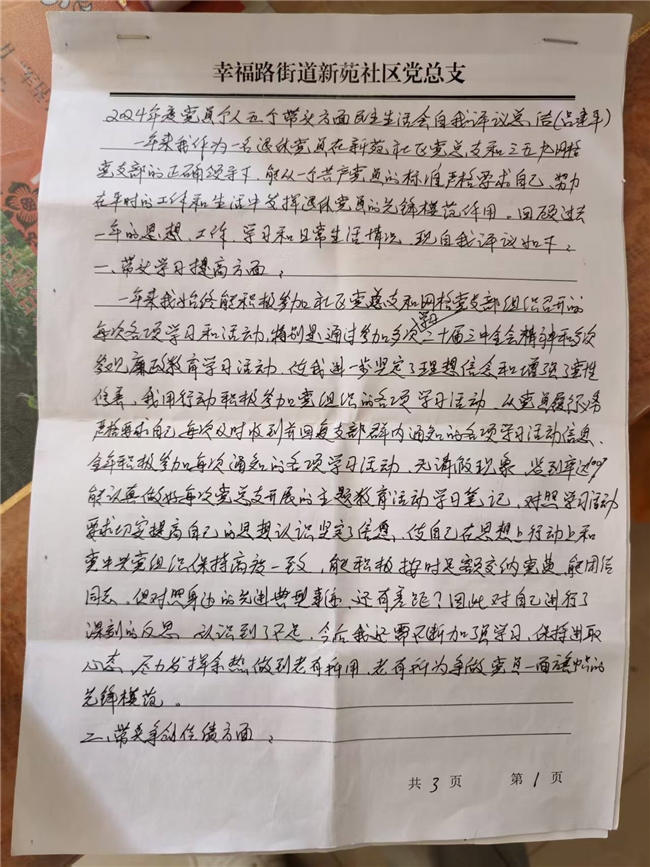 幸福路街道新苑社区党总支
2024年度党员个人五个带头方面民主生活会自我评议总结(吕建军)
一年来我作为一名退休党员在新苑社区党总支和三五九网格
党支部的正确领导下,能从一个共产党员的标准严格要求自己,努力
在平时的工作和生活中发挥退休党员的先锋模范作用。回顾过去
一年的思想、工作、学习和日常生活情况,现自我评议如下:
一、带头学习提高方面:
一年来我始终能积极参加社区党总支和网格党支部组织召开的
每次各项学习和活动,特别是通过参加多次学习二十届三中全会精神和多次
参观廉政教育学习活动,使我进一步坚定了理想信念和增强了党性
修养,我用行动积极参加党组织的各项学习活动,从党员履行义务
严格要求自己,每次及时收到并回复支部群内通知的各项学习活动信息,
全年积极参加每次通知的各项学习活动,无请假现象,签到率达100%
能认真做好每次党总支开展的主题教育活动学习笔记,对照学习活动
要求切实提高自己的思想认识坚定了信念,使自己在思想上行动上和
党中央党组织保持高度一致,能积极按时足额交纳党费,能团结
同志,但对照身边的先进典型事迹,还有差距?因此对自己进行了
深刻的反思,认识到了不足,今后我还要不断加强学习,保持进取
心态,尽力发挥余热,做到老有所用,老有所为争做党员一面旗帜的
先锋模范。
二、带头争创佳绩方面:
共 3 页 第 1 页